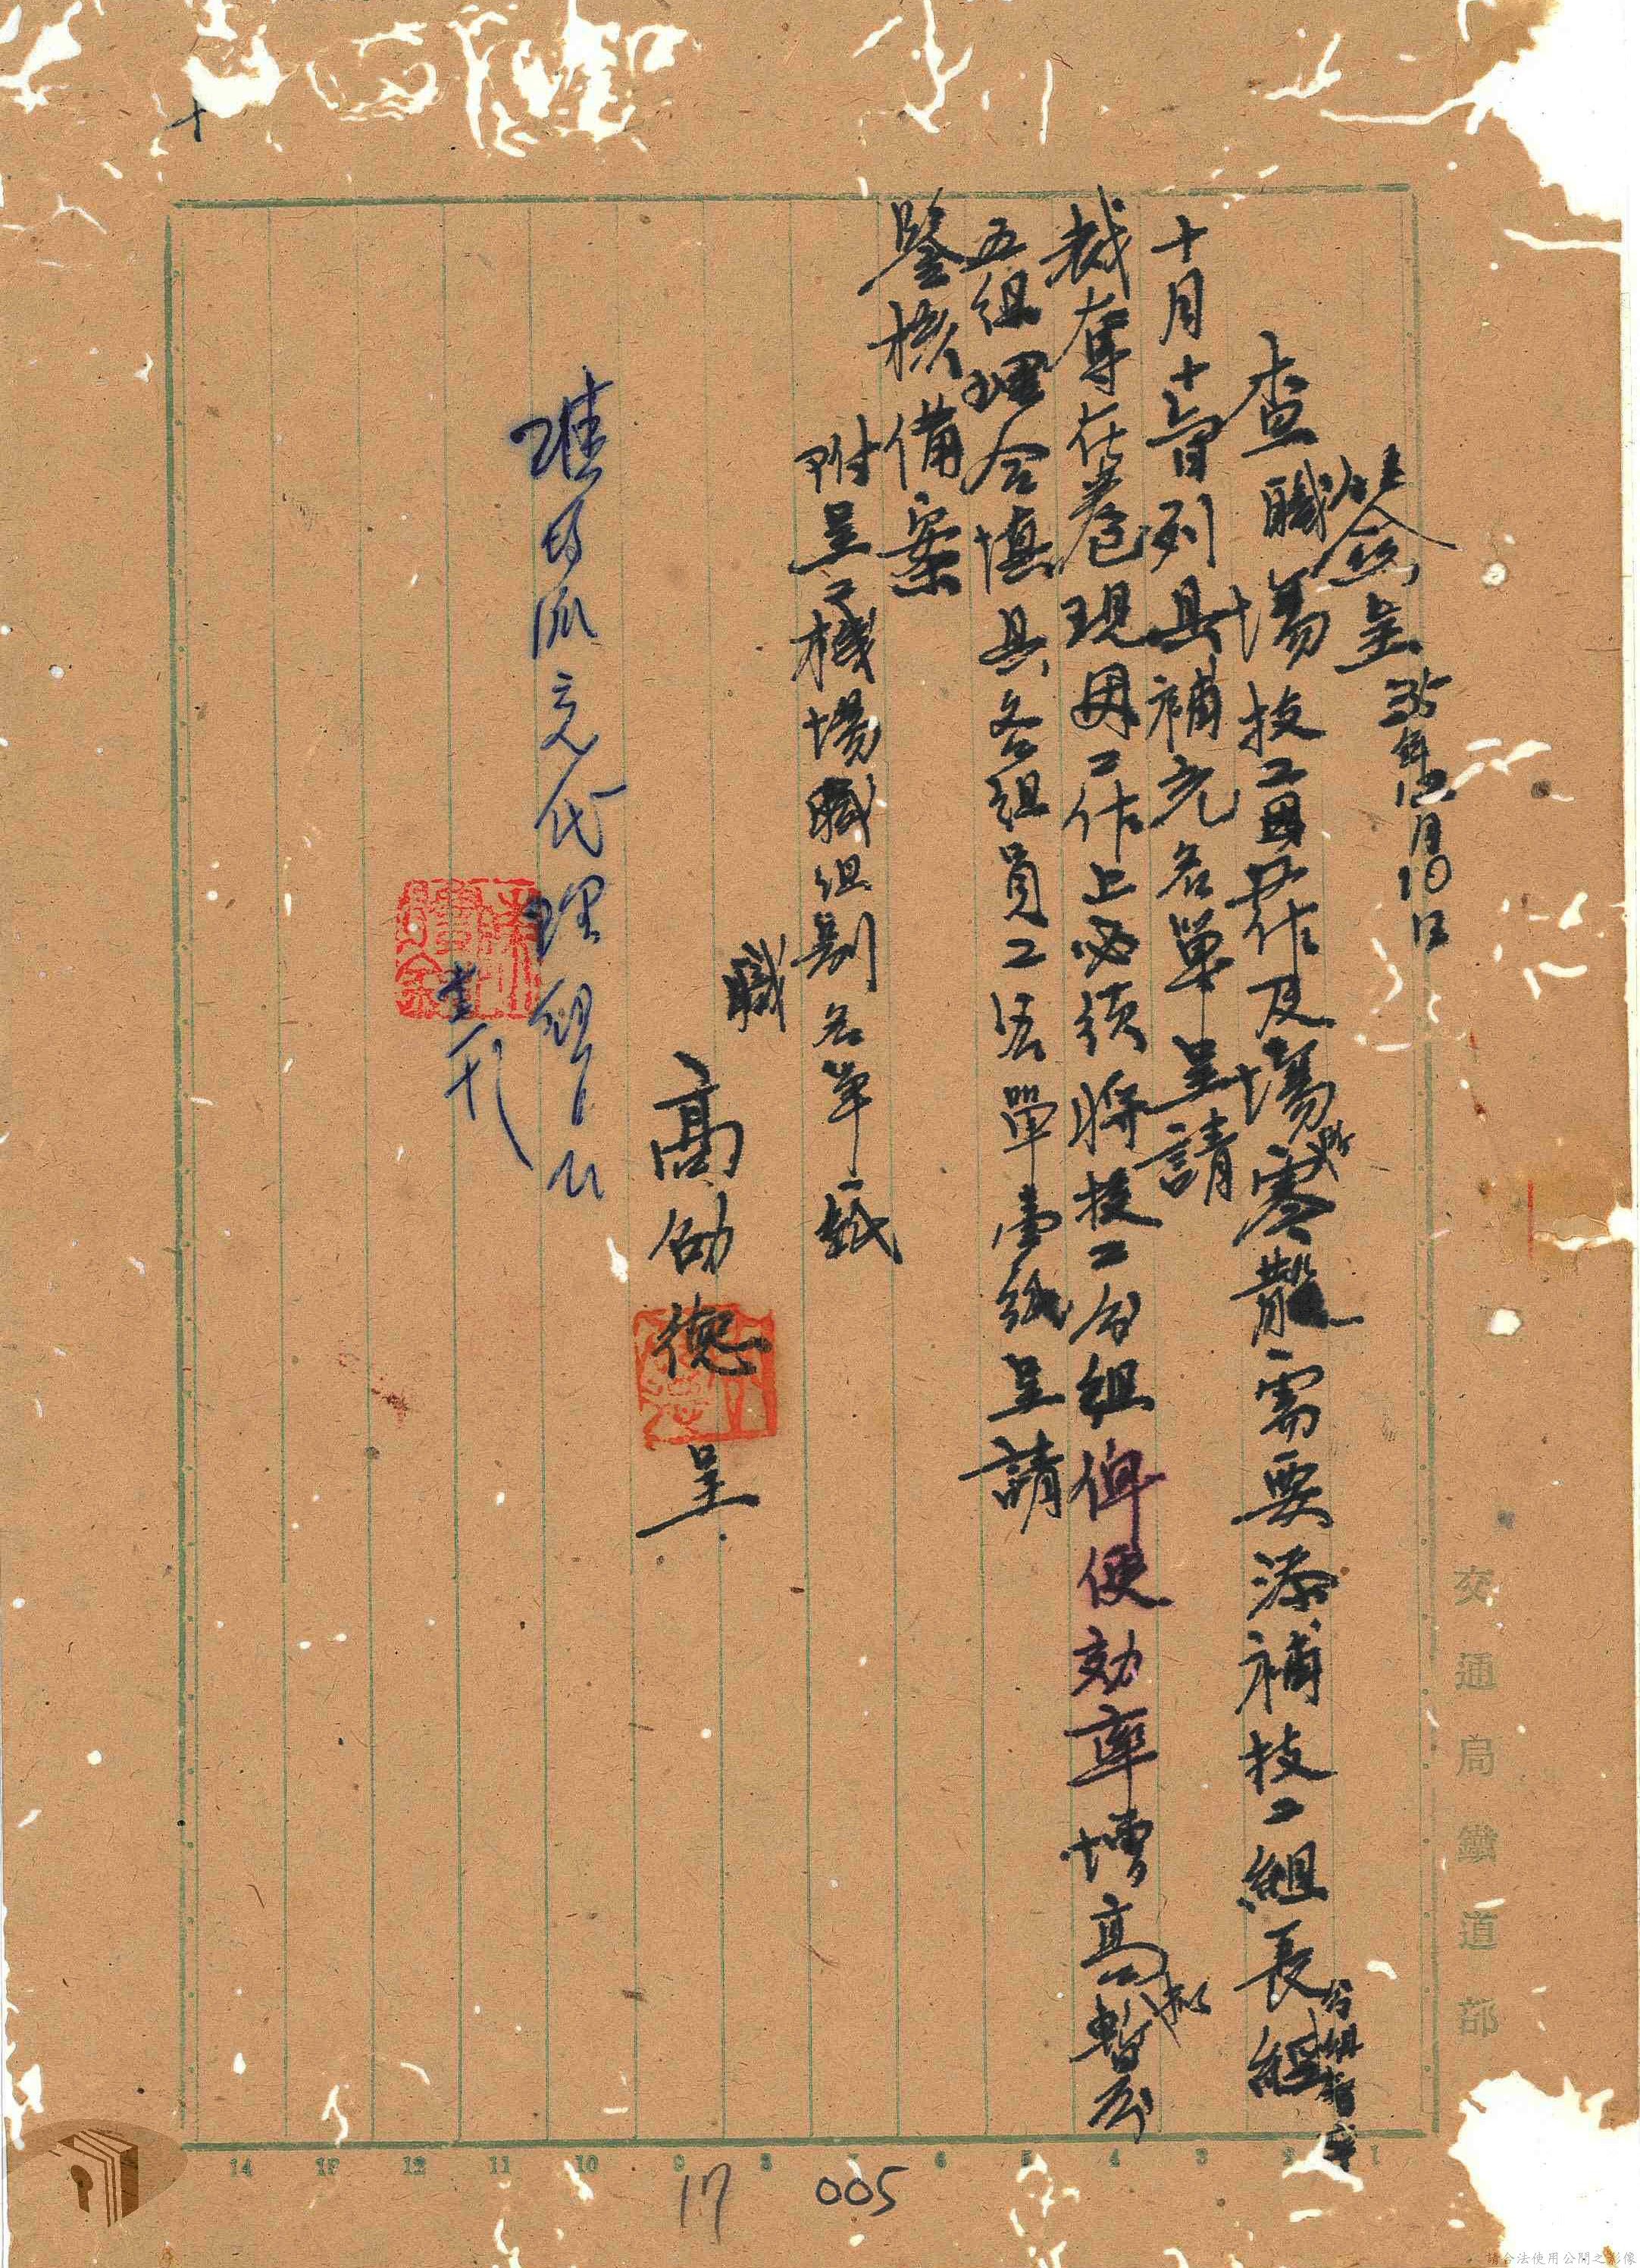 簽呈 35年12月10日
查職場技工工作及場所零散需要添補技工組長經
分組
十月十二日列具補充名單呈請
裁奪在卷現因工作上必須將技工分組俾便効率增高擬暫分
五組理合填具各組員工名單壹紙呈請
鑒核備案
附呈工機場職組別名單一紙
職
高劭德呈
准
充代理組
交通局鐵道部
14 13 12 11 10 9 8 7 6 5 4 3 2 1
17 005
請合法使用公開之影像